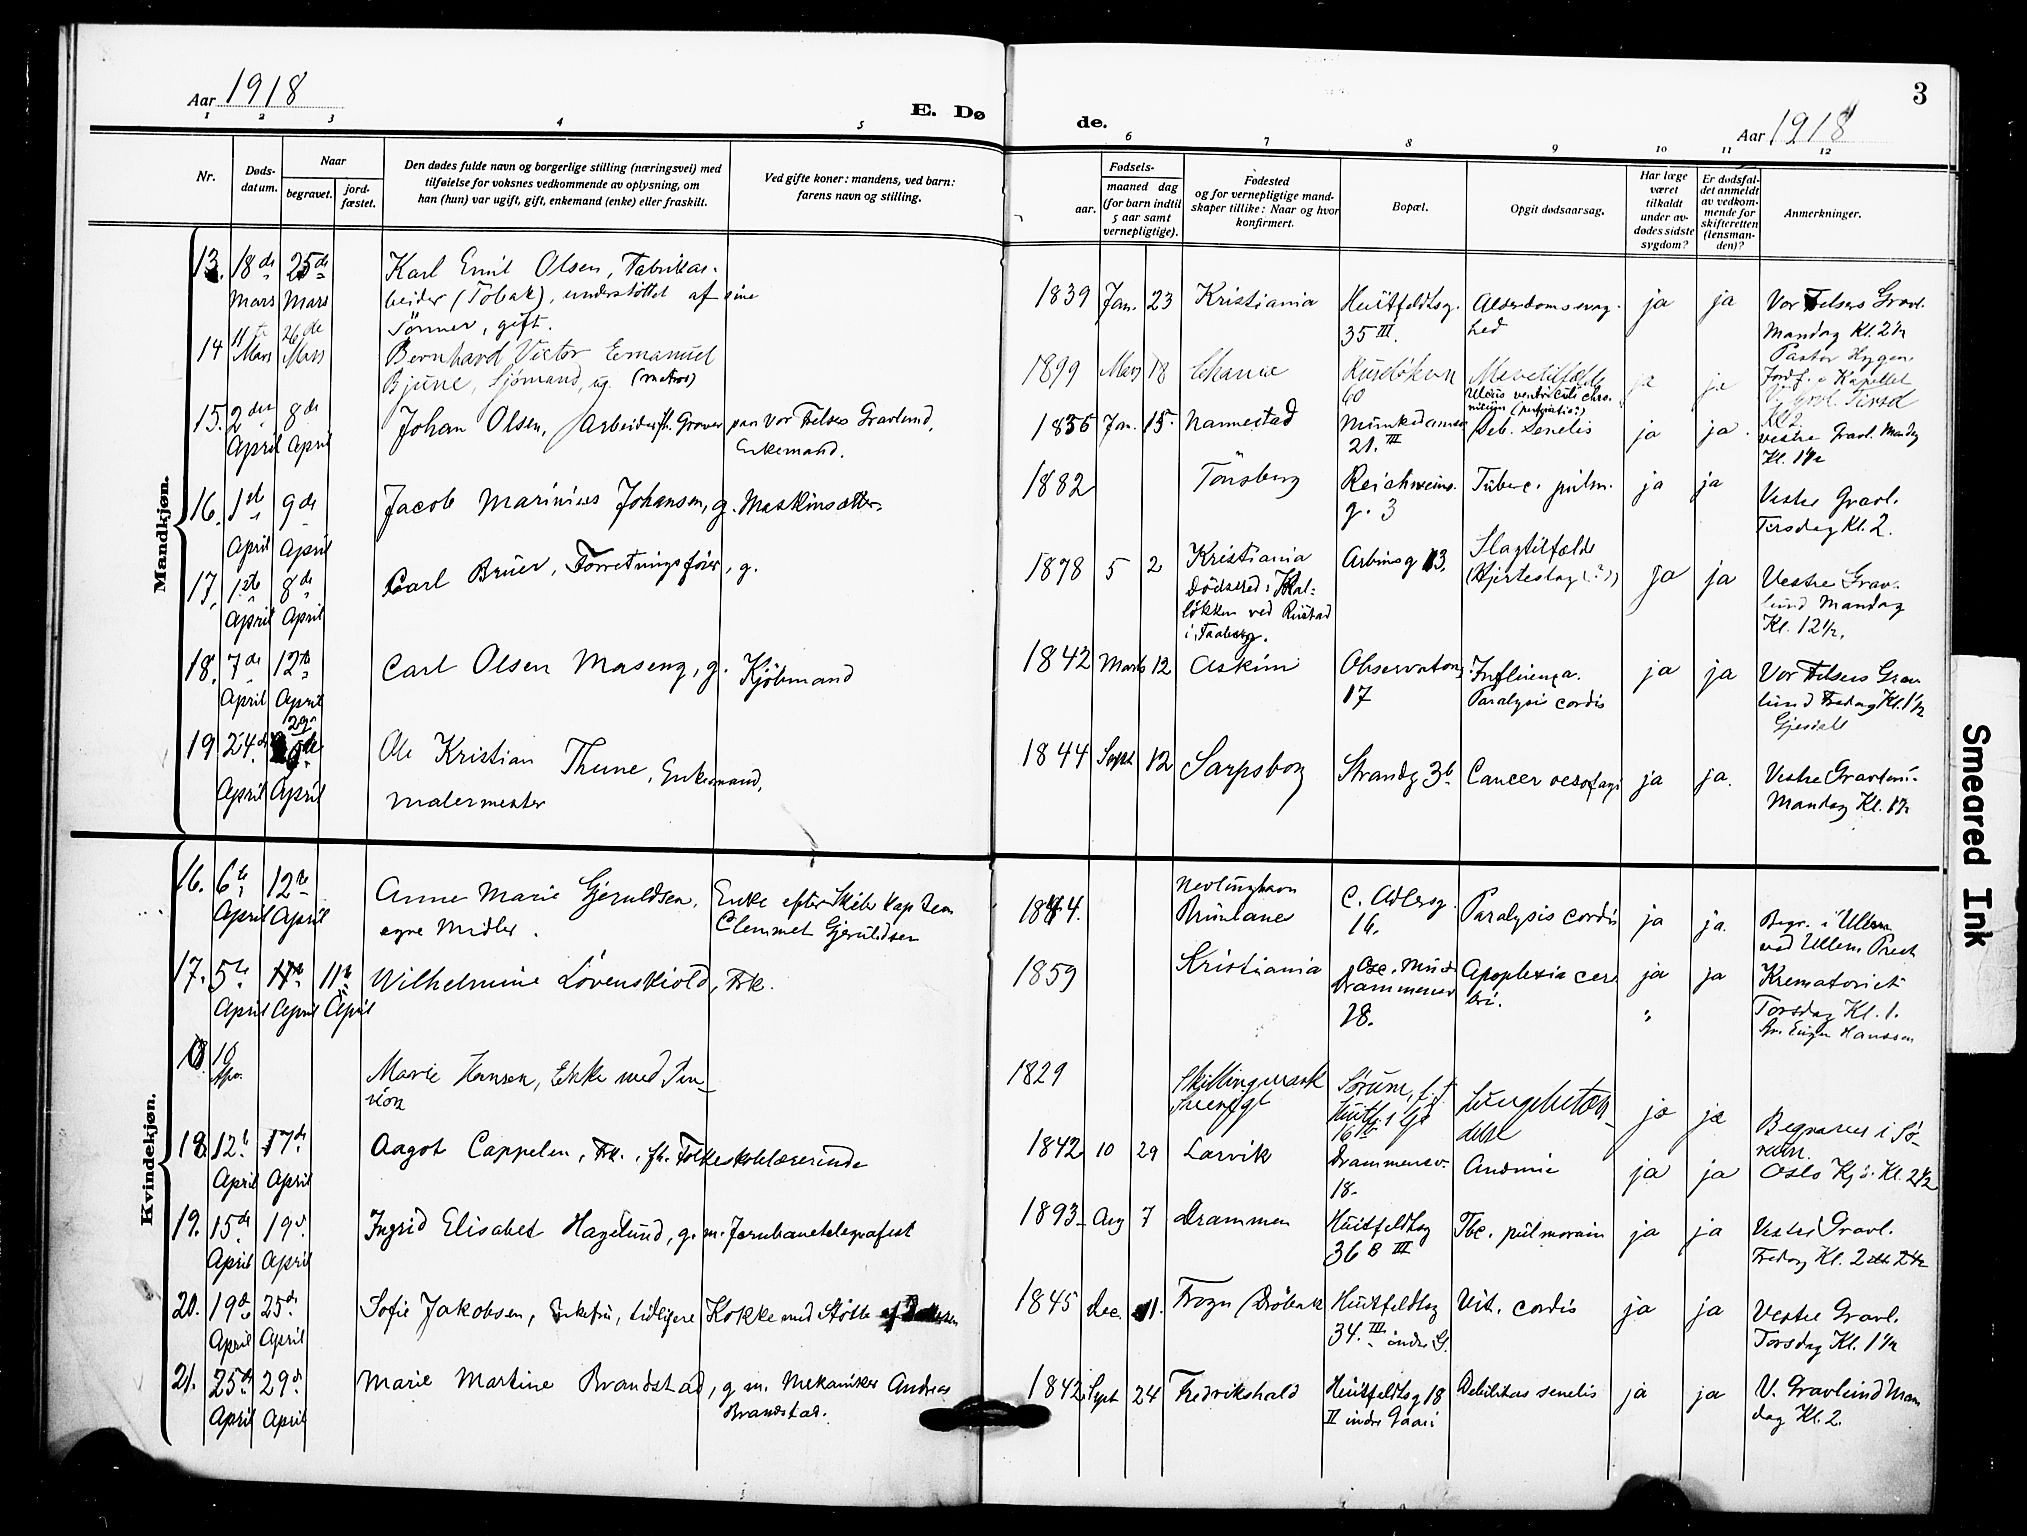 Aar 1918
E. Dø
de.
Aar 1918
3
1 2 3 4 5 6 7 8 9 10 11 12
Nr.
Døds-
datum.
Naar
begravet.
jord-
fæstet.
Den dødes fulde navn og borgerlige stilling (næringsvei) med
tilføielse for voksnes vedkommende av oplysning, om
han (hun) var ugift, gift, enkemand (enke) eller fraskilt.
Ved gifte koner: mandens, ved barn:
farens navn og stilling.
Fødsels-
aar.
maaned dag
(for barn indtil
5 aar samt
vernepligtige).
Fødested
og for vernepligtige mand-
skaper tillike: Naar og hvor
konfirmert.
Bopæl.
Opgit dødsaarsag.
Har læge
været
tilkaldt
under av-
dødes sidste
sygdom?
Er dødsfal-
det anmeldt
av vedkom-
mende for
skifteretten
(lensman-
den)?
Anmerkninger.
Mandkjøn.
13. 18de 25de Karl Emil Olsen, Fabrikar- 1839 Jan. 23 Kristiania Huitfeldtsg. Alderdomssvag- ja ja Vor Frelsers Gravl.
Mars Mars beider (Tobak), understöttet af sine 35 III. hed Mandag Kl. 2½
Sönner, gift. Pastor Hygen
14 11te 26de Bernhard Victor Emanuel 1899 Mars 18 Ruseløkvn ja ja Jordf. i Kapellet
Mars Mars Bjune, Sjömand, ug. 60 Ulcus ventriculi chro-
15. 2den 8de Johan Olsen, Arbeider, fh. Graver paa Vor Frelsers Gravlund, 1836 Jan. 15. Nannestad Munkedamsv. Deb. senilis ja ja. Vestre Gravl. Mandag
April April Enkemand. 21. III Kl. 1½
16. 1ste 9de Jacob Marinius Johansen, g. Maskinsætter. 1882 Tönsberg Reichweins- Tuberc. pulm. ja ja Vestre Gravl.
April April g. 3 Tirsdag Kl. 2.
17. 1ste 8de Carl Bruer, Forretningsförer, g. 1878 5 2 Kristiania Arbinsg 13. Slagtilfælde ja ja Vestre Grav-
April April Dödssted: (Hjerteslag (?)) lund Mandag
løkken ved Rustad Kl. 12½.
i Faaberg.
18. 7de 12te Carl Olsen Maseng, g. Kjöbmand 1842 Marts 12 Askim Observatorg. Influenza. ja ja Vor Frelsers Grav
April April 17 Paralysis cordis lund Fredag Kl. 1½
Gjesdal
19 24de 29de Ole Kristian Thune, Enkemand, 1844 Sept. 12 Sarpsborg Strandg 3b Cancer oesofagi ja ja. Vestre Gravlund
April April Malermester Mandag Kl. 1½
Kvindekjøn.
16. 6te 12te Anne Marie Gjeruldsen, Enke efter Skibskaptein 1844. Nevlunghavn C. Adlersg. Paralysis cordis ja ja. Begr. i Ullern
April April egne Midler. Clemmet Gjeruldsen Brunlanes 16. ved Ullern Prest
17. 5te 11te 11te Wilhelmine Lövenskiold, Frk. 1859 Kristiania Drammensv Apoplexia cere ja ja Krematoriet
April April April 28. bri. Torsdag Kl. 1.
Hanssen
18 10 Marie Hansen, Enke med Pen- 1829 Skillingmark Sørum, Lungebetæn- ja ja Begraves i Sø-
Apr. sion delse rum.
18. 12te 17de Aagot Cappelen, Frk., fh. Folkeskolelærerinde 1842 10 29 Larvik Drammensv. Anæmie ja ja Oslo Kj. Kl. 2½
April April 18.
19. 15de 19de Ingrid Elisabet Hagelund, g. m. Jernbanetelegrafist 1893 Aug 7 Drammen Huitfeldtsg Tbc. pulmonum ja ja Vestre Gravl.
April April 36B III Fredag Kl. 2
20. 19de 25de Sofie Jakobsen, Enkefru, tidligere Kokke med Støtte af 1845 Dec. 11. Frogn (Dröbak Huitfeldtsg Vit. cordis ja ja Vestre Gravl.
April April 34. III indre G. Torsdag Kl. 1½
21. 25de 29de Marie Martine Brandstad, g m. Mekaniker Andreas 1842 Sept 24 Fredrikshald Huitfeldtsg 18 Debilitas senilis ja ja V. Gravlund Man
April April Brandstad. II indre Gaard dag Kl. 2.
Smeared Ink